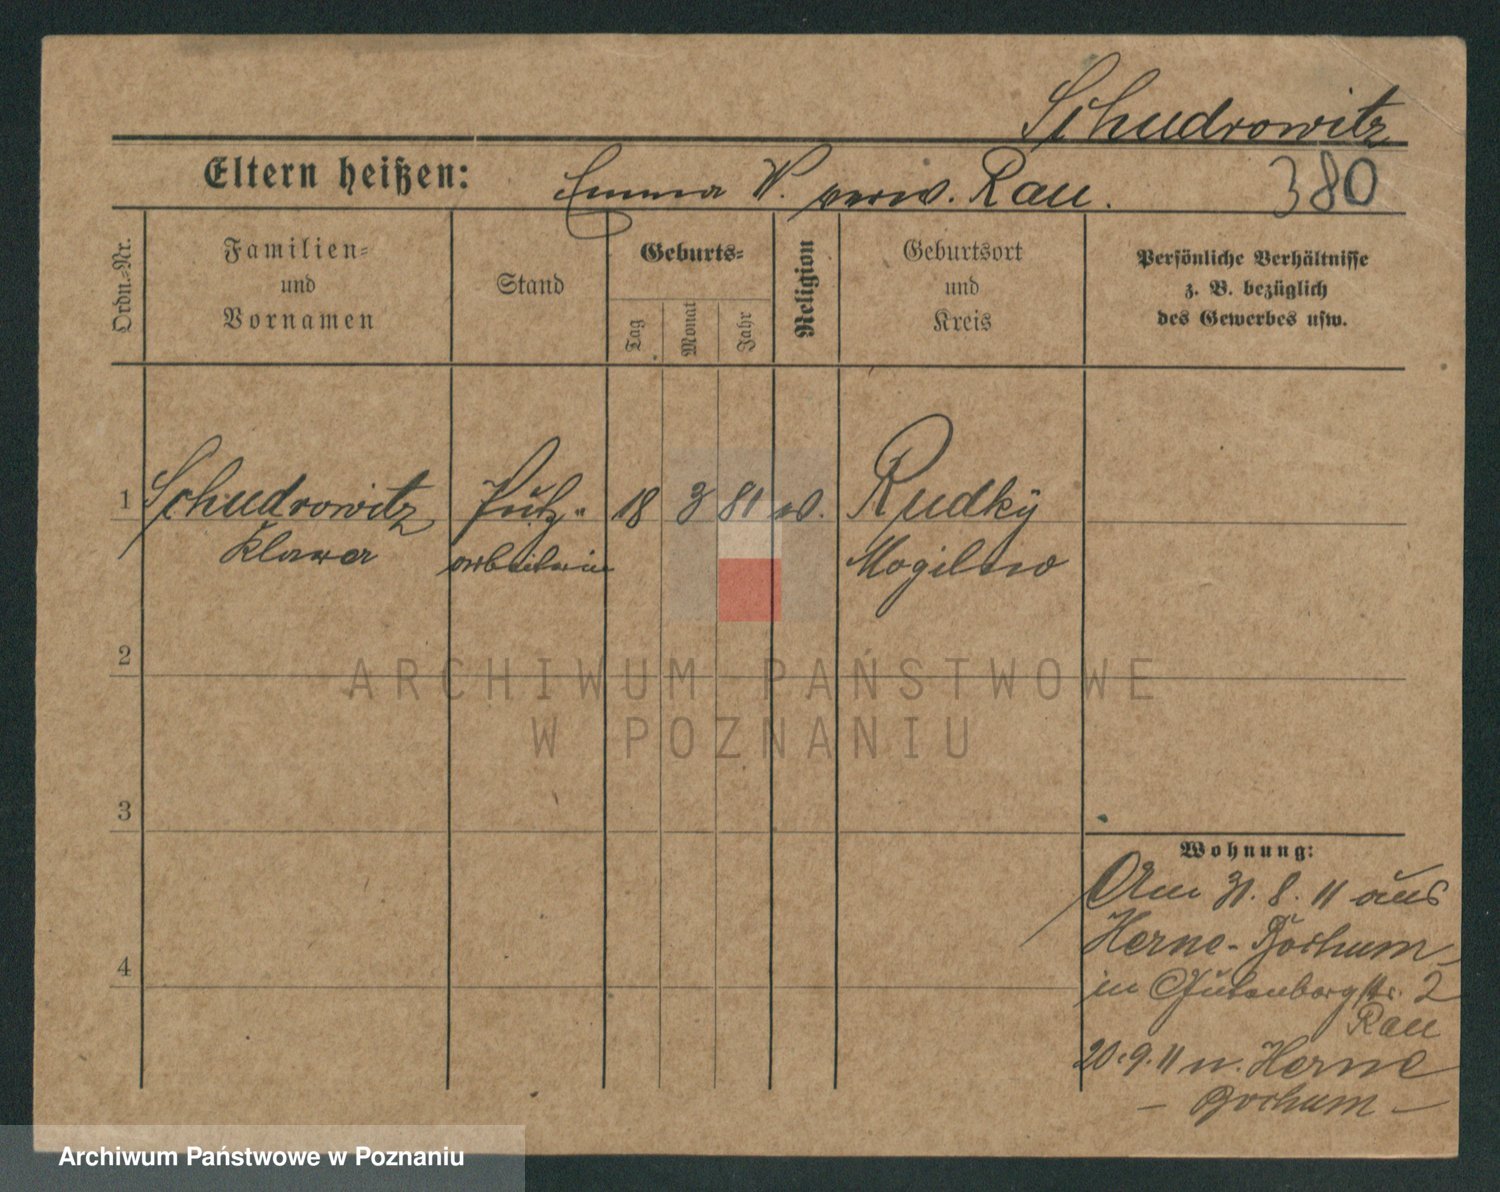 Schudrowitz
Eltern heißen: Emma W. verw. Rau. 380
Ordn.-Nr.
Familien-
und
Vornamen
Stand
Geburts-
Tag
Monat
Jahr
Religion
Geburtsort
und
Kreis
Persönliche Verhältnisse
z. B. bezüglich
des Gewerbes usw.
1 Schudrowitz Putz- 18 3 81 Rudky
arbeiterin Mogilno
2
3
4
Wohnung:
Am 31.8.11 aus
Herne-Bochum
in Gutenbergstr. 2
Rau
20.9.11 n. Herne
- Bochum -
ARCHIWUM PAŃSTWOWE
W POZNANIU
Archiwum Państwowe w Poznaniu